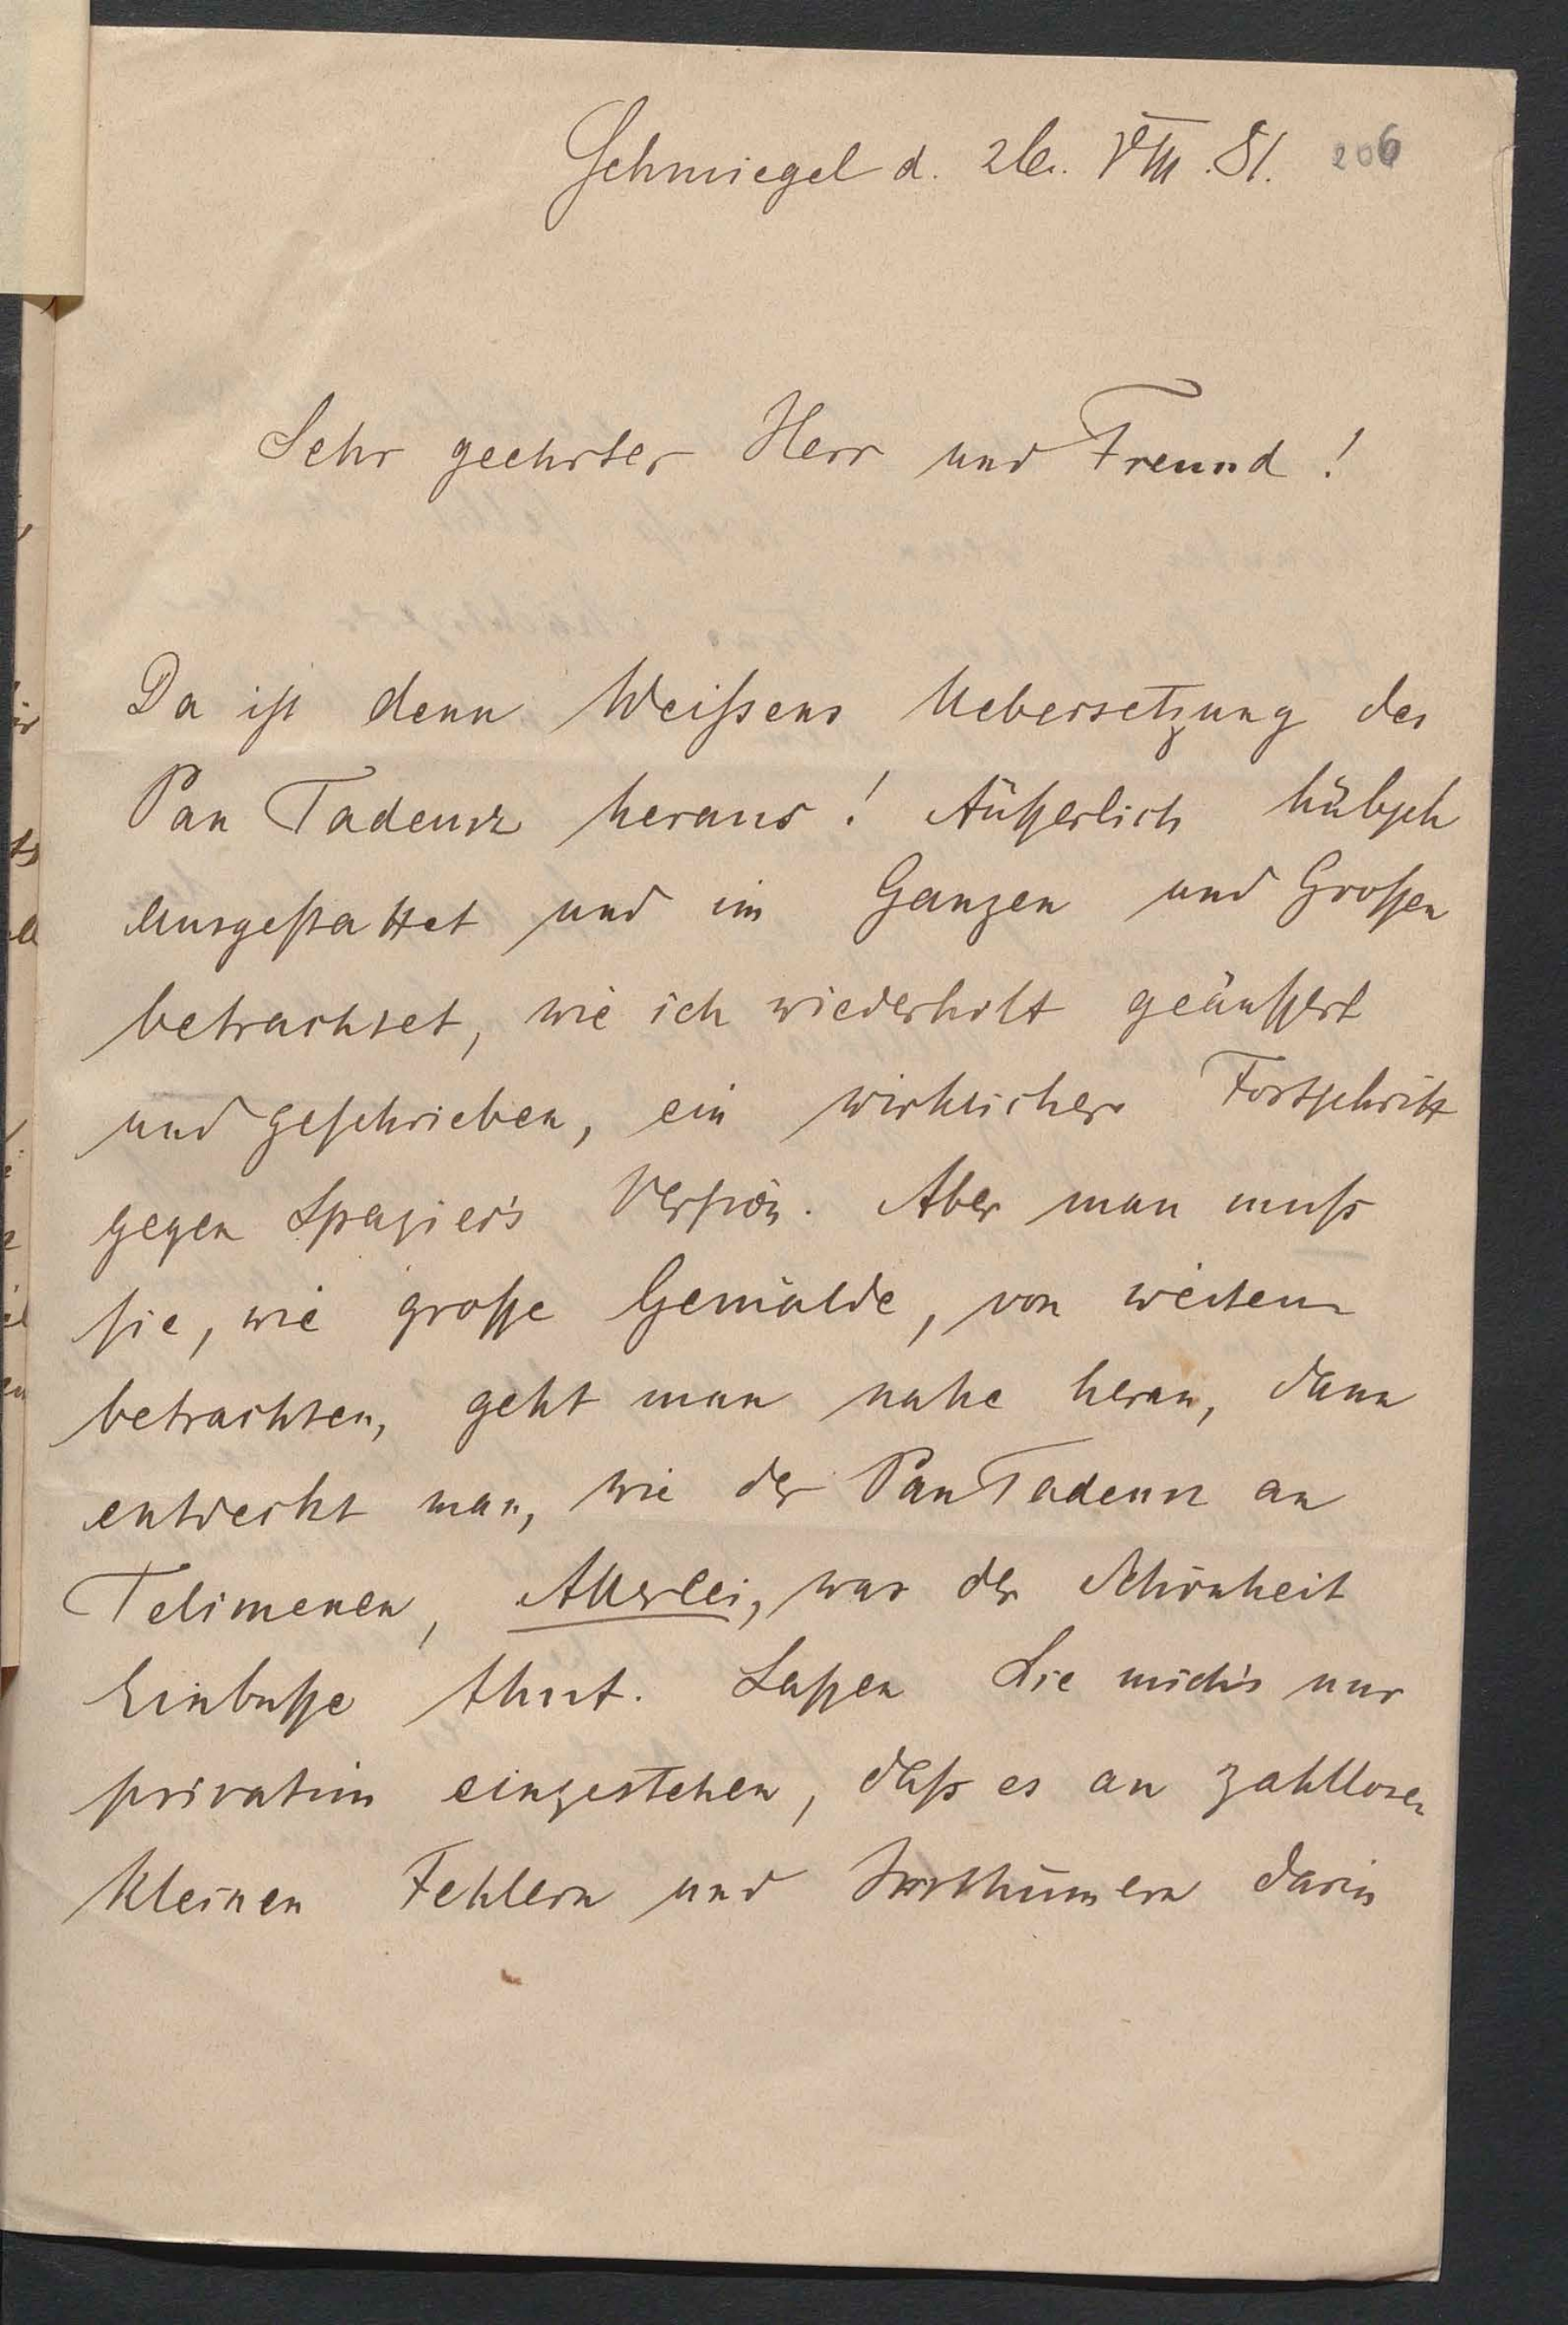 Schmiegel d. 26. VIII. 81. 206
Sehr geehrter Herr und Freund!
Da ist denn Weißens Uebersetzung des
Pan Tadeusz heraus! Äußerlich hübsch
ausgestattet und im Ganzen und Großen
betrachtet, wie ich wiederholt geäußert
und geschrieben, ein wirklicher Fortschritt
gegen Spazier's Version. Aber man muß
sie, wie große Gemälde, von weitem
betrachten, geht man nahe heran, dann
entdeckt man, wie der Pan Tadeusz an
Telimenen, Allerlei, was der Schönheit
Einbuße thut. Laßen Sie mich's nur
privatim eingestehen, daß es an zahllosen
kleinen Fehlern und Irrthümern darin